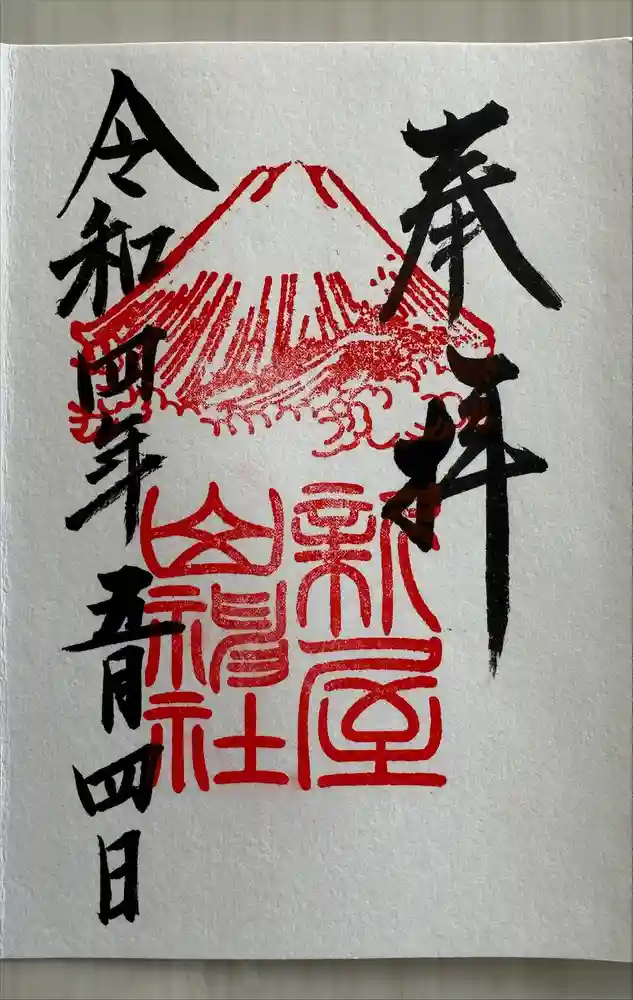 奉拝
新屋
山神社
令和四年五月四日